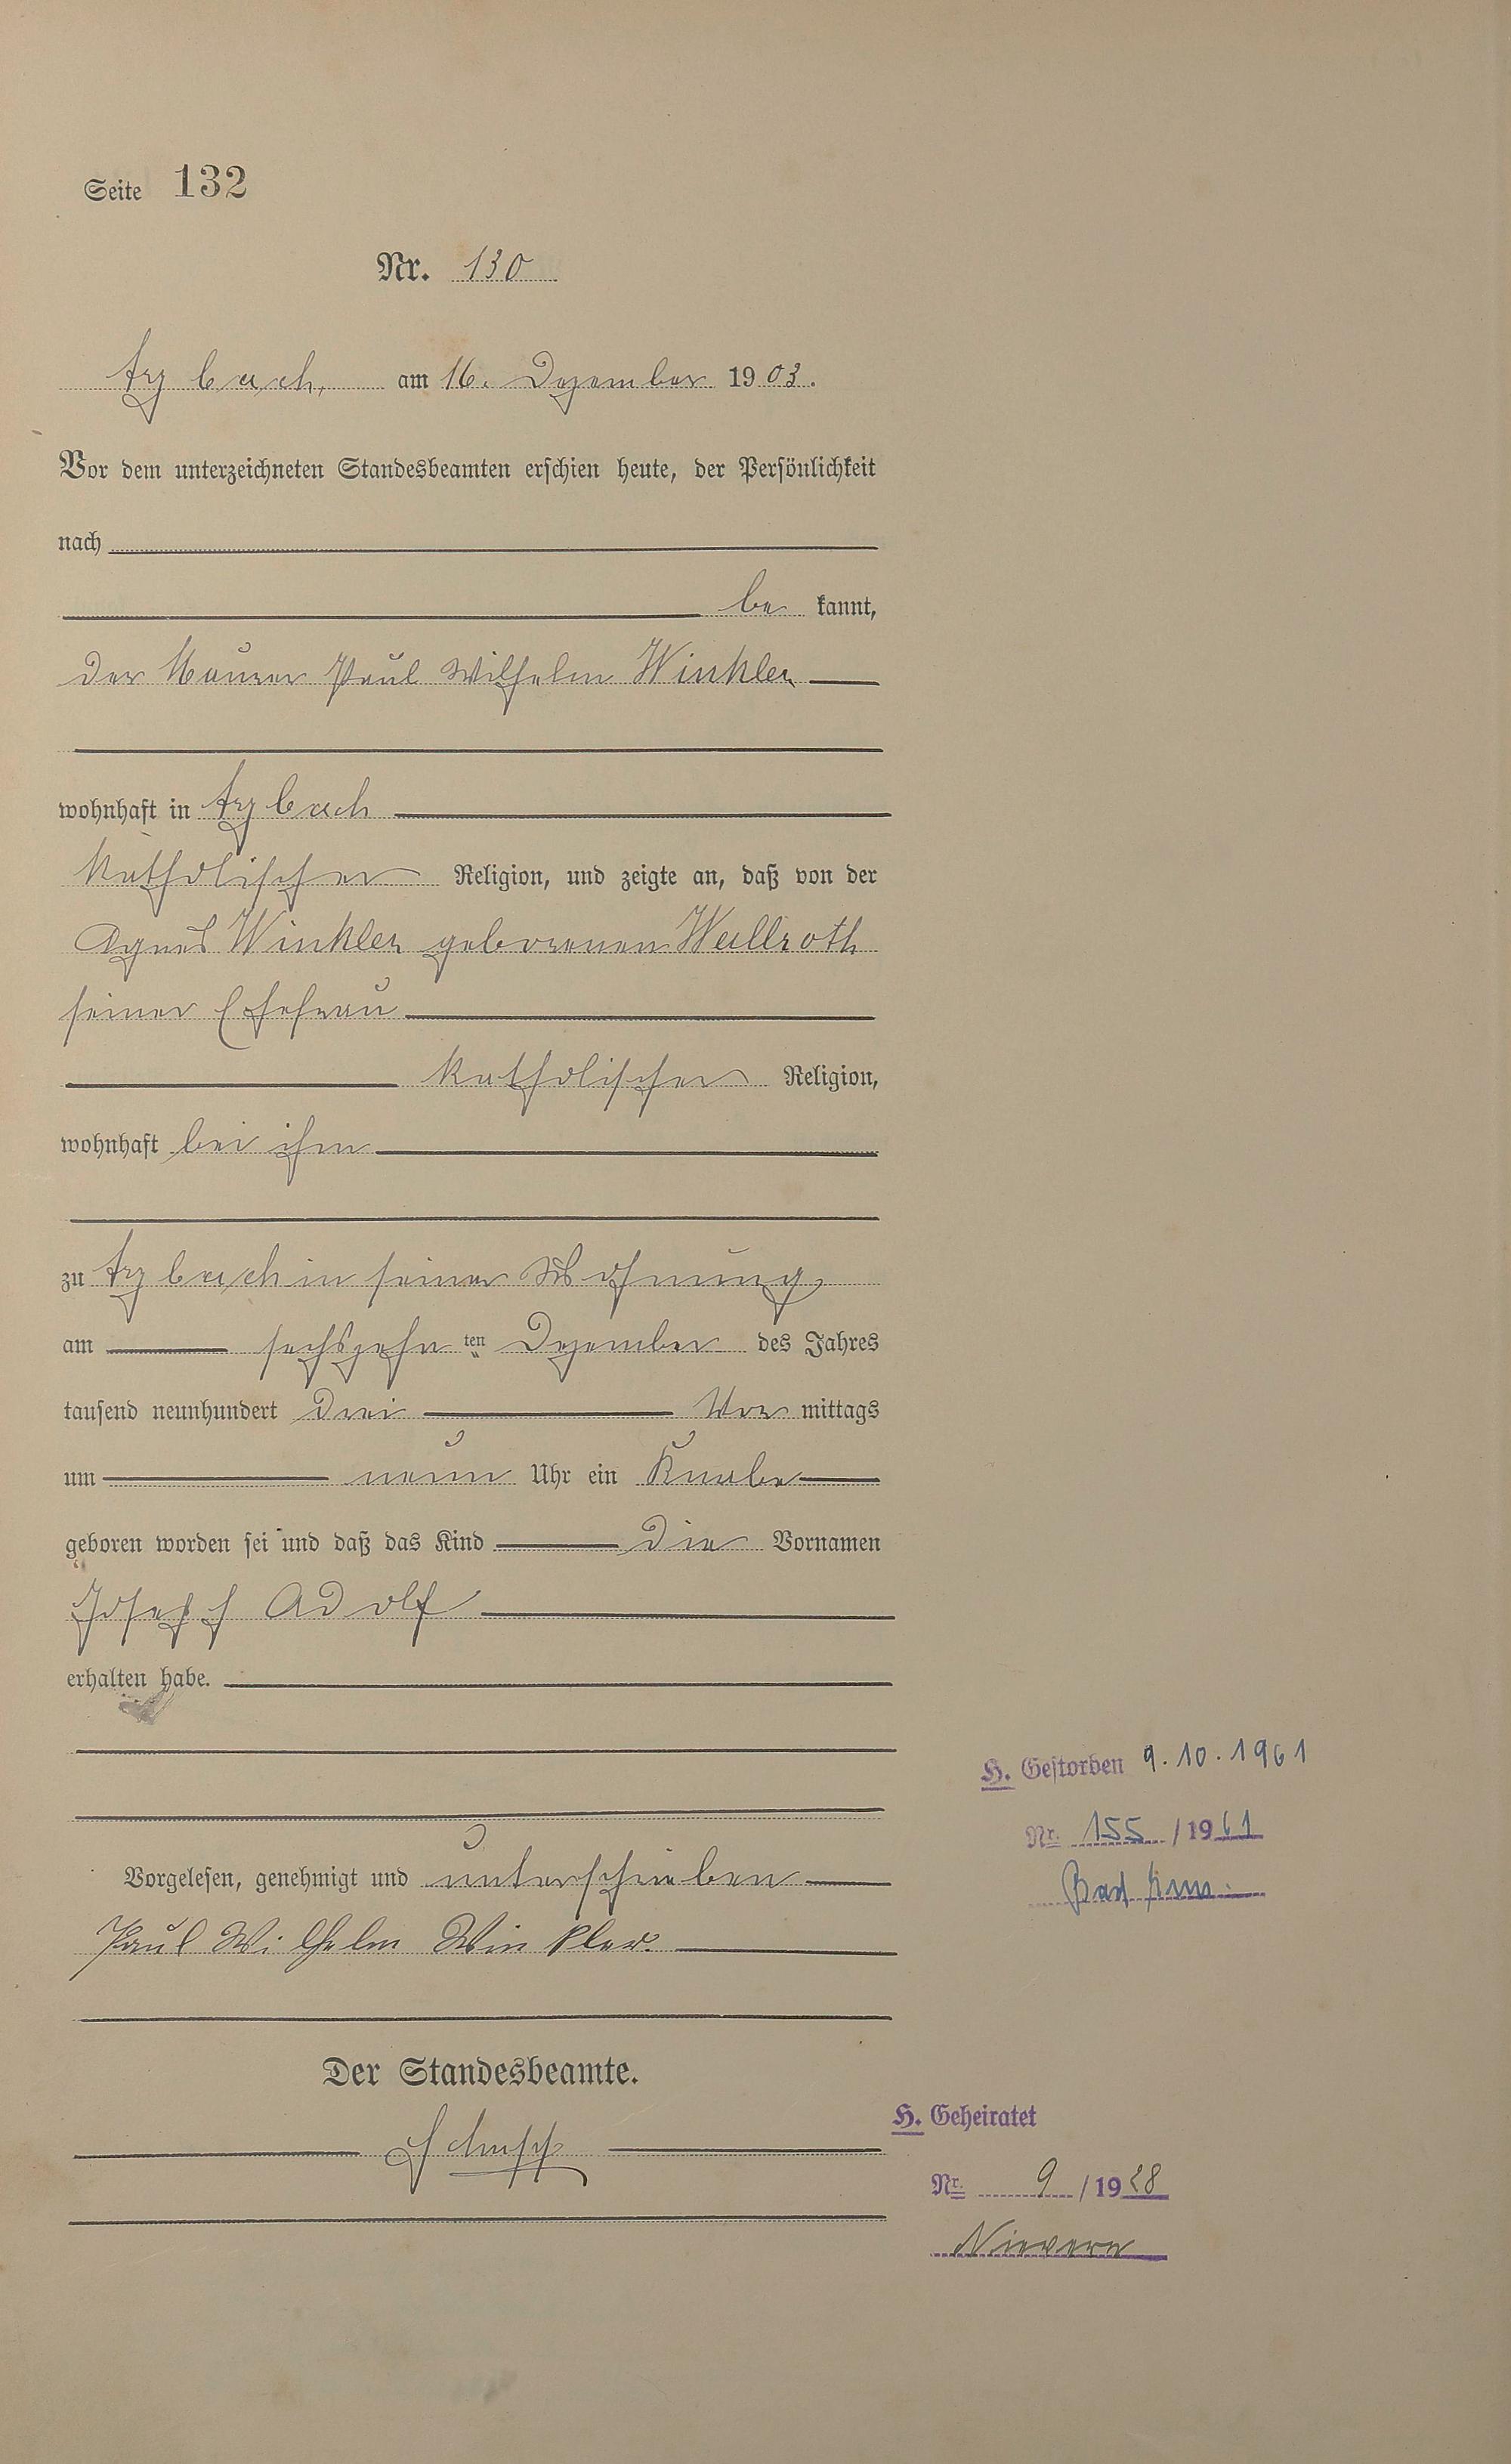 Seite 132
Nr. 130
Arzbach, am 16. Dezember 1903.
Vor dem unterzeichneten Standesbeamten erschien heute, der Persönlichkeit
nach
be kannt,
der Maurer Paul Wilhelm Winkler
wohnhaft in Arzbach
katholischer Religion, und zeigte an, daß von der
Agnes Winkler geborenen Wallroth
seiner Ehefrau
katholischer Religion,
wohnhaft bei ihm
zu Arzbach in seiner Wohnung
am sechszehn ten Dezember des Jahres
tausend neunhundert drei Vor mittags
um neun Uhr ein Knabe
geboren worden sei und daß das Kind die Vornamen
Joseph Adolf
erhalten habe.
H. Gestorben 9.10.1961
Nr. 155 / 1961
Bad Ems
Vorgelesen, genehmigt und unterschrieben
Paul Wilhelm Winkler.
Der Standesbeamte.
Schupp
H. Geheiratet
Nr. 9 / 1928
Nievern